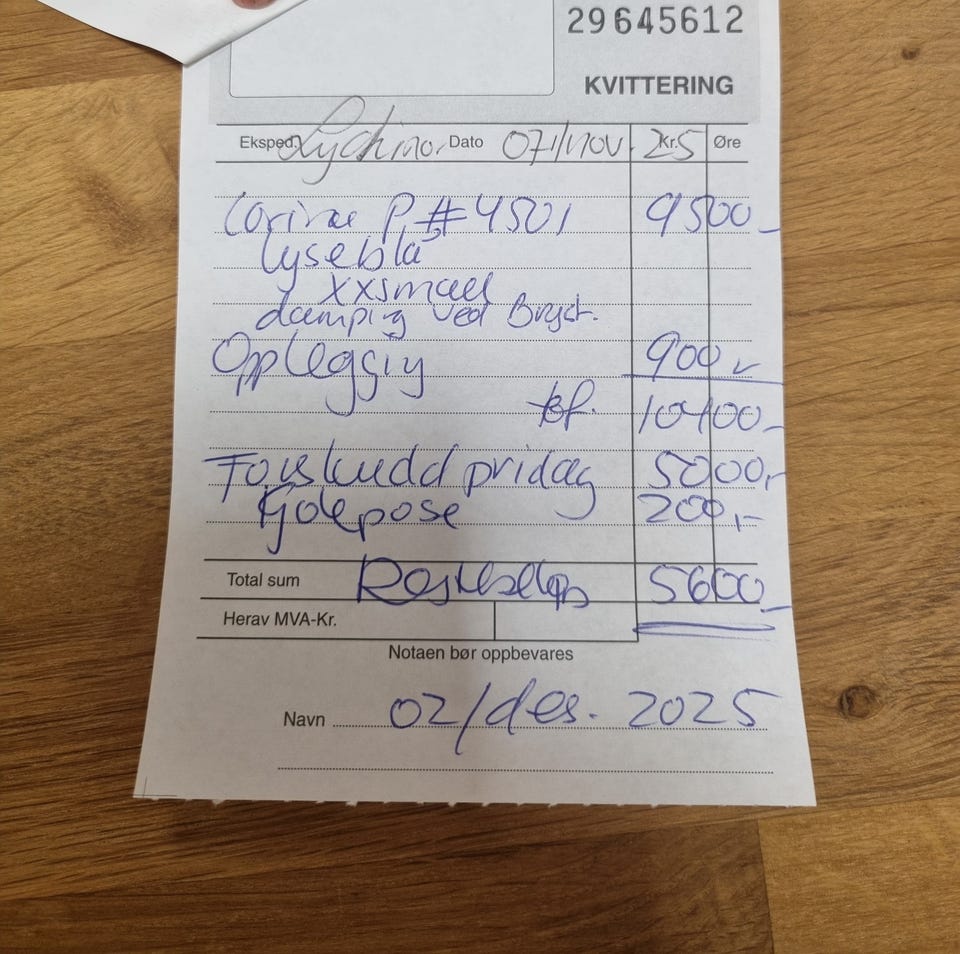 29645612
KVITTERING
Eksped. Dato 07/nov. Kr. 25 Øre
P #4501 9500,-
lyseblå
xxsmall
damping ved Bryst.
Opplegging 900,-
10400,-
Forskudd pridag 5000,-
Kjolepose 200,-
Total sum Restbeløp 5600,-
Herav MVA-Kr.
Notaen bør oppbevares
Navn 02/des. 2025